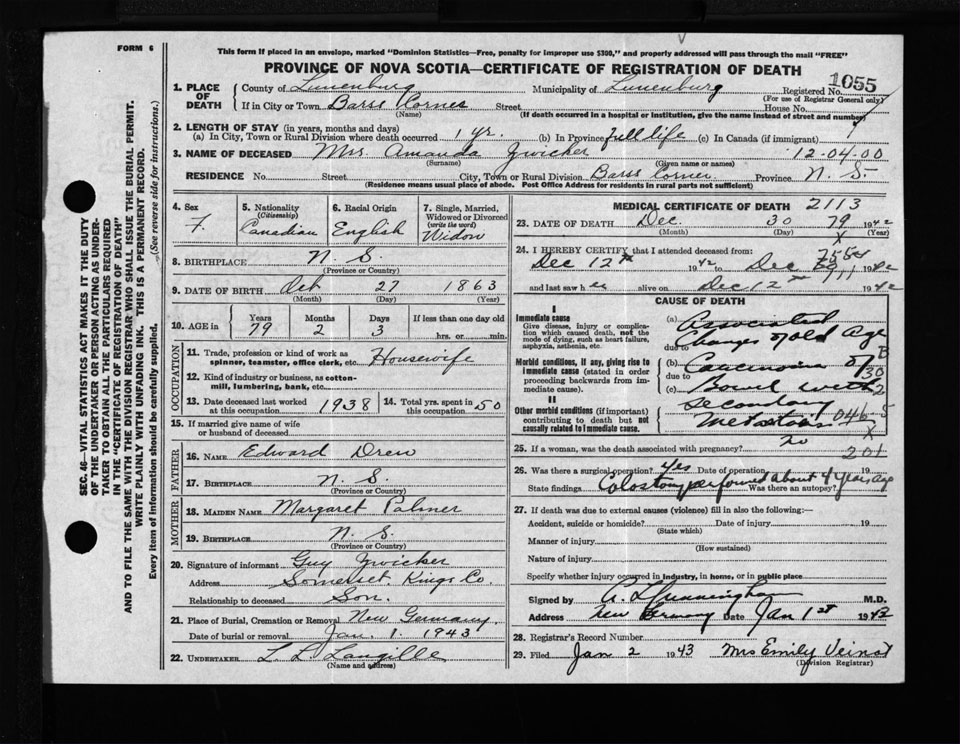 FORM 6
This form if placed in an envelope, marked "Dominion Statistics—Free, penalty for improper use $300," and properly addressed will pass through the mail "FREE"
PROVINCE OF NOVA SCOTIA—CERTIFICATE OF REGISTRATION OF DEATH
SEC. 46—VITAL STATISTICS ACT MAKES IT THE DUTY
OF THE UNDERTAKER OR PERSON ACTING AS UNDER-
TAKER TO OBTAIN ALL THE PARTICULARS REQUIRED
IN THE "CERTIFICATE OF REGISTRATION OF DEATH"
AND TO FILE THE SAME WITH THE DIVISION REGISTRAR WHO SHALL ISSUE THE BURIAL PERMIT.
WRITE PLAINLY WITH UNFADING INK. THIS IS A PERMANENT RECORD.
Every item of information should be carefully supplied. (See reverse side for instructions.)
1. PLACE OF DEATH County of Lunenburg Municipality of Lunenburg Registered No. 1055
(For use of Registrar General only)
If in City or Town Barss Corner Street House No.
(Name) (If death occurred in a hospital or institution, give the name instead of street and number)
2. LENGTH OF STAY (in years, months and days)
(a) In City, Town or Rural Division where death occurred 1 yr. (b) In Province full life (c) In Canada (if immigrant)
3. NAME OF DECEASED Mrs. Amanda Zwicker 12-04-00
(Surname) (Given name or names)
RESIDENCE No. Street City, Town or Rural Division Barss Corner Province N. S.
(Residence means usual place of abode. Post Office Address for residents in rural parts not sufficient)
4. Sex F.
5. Nationality (Citizenship) Canadian
6. Racial Origin English
7. Single, Married, Widowed or Divorced (write the word) Widow
8. BIRTHPLACE N. S.
(Province or Country)
9. DATE OF BIRTH Oct 27 1863
(Month) (Day) (Year)
10. AGE in Years 79 Months 2 Days 3 If less than one day old hrs. or min.
OCCUPATION
11. Trade, profession or kind of work as spinner, teamster, office clerk, etc. Housewife
12. Kind of industry or business, as cotton-mill, lumbering, bank, etc.
13. Date deceased last worked at this occupation 1938 14. Total yrs. spent in this occupation 50
15. If married give name of wife or husband of deceased
FATHER
16. NAME Edward Drew
17. BIRTHPLACE N. S.
(Province or Country)
MOTHER
18. MAIDEN NAME Margaret Palmer
19. BIRTHPLACE N. S.
(Province or Country)
20. Signature of informant Guy Zwicker
Address Somerset, Kings Co.
Relationship to deceased Son.
21. Place of Burial, Cremation or Removal New Germany,
Date of burial or removal Jan. 1. 1943
22. UNDERTAKER L. L. Langille
(Name and address)
MEDICAL CERTIFICATE OF DEATH 2113
23. DATE OF DEATH Dec. 30 79 1942
(Month) (Day) (Year)
24. I HEREBY CERTIFY that I attended deceased from:
Dec 12th 1942 to Dec 1942
and last saw her alive on Dec 12th 1942
CAUSE OF DEATH
I
Immediate cause
Give disease, injury or complication which caused death, not the mode of dying, such as heart failure, asphyxia, asthenia, etc.
Morbid conditions, if any, giving rise to immediate cause (stated in order proceeding backwards from immediate cause).
II
Other morbid conditions (if important) contributing to death but not causally related to immediate cause.
(a) Associated
due to Changes of old Age
(b) Carcinoma of
due to
(c) Bowel with
Secondary
Metastasis 046
25. If a woman, was the death associated with pregnancy? No 201
26. Was there a surgical operation? Yes Date of operation 19
State findings Colostomy performed about 4 years ago Was there an autopsy?
27. If death was due to external causes (violence) fill in also the following:—
Accident, suicide or homicide? Date of injury 19
(State which)
Manner of injury
(How sustained)
Nature of injury
Specify whether injury occurred in industry, in home, or in public place
Signed by Cunningham M.D.
Address New Germany Date Jan 1st 1943
28. Registrar's Record Number
29. Filed Jan 2 1943 Mrs Emily Veinot
(Division Registrar)